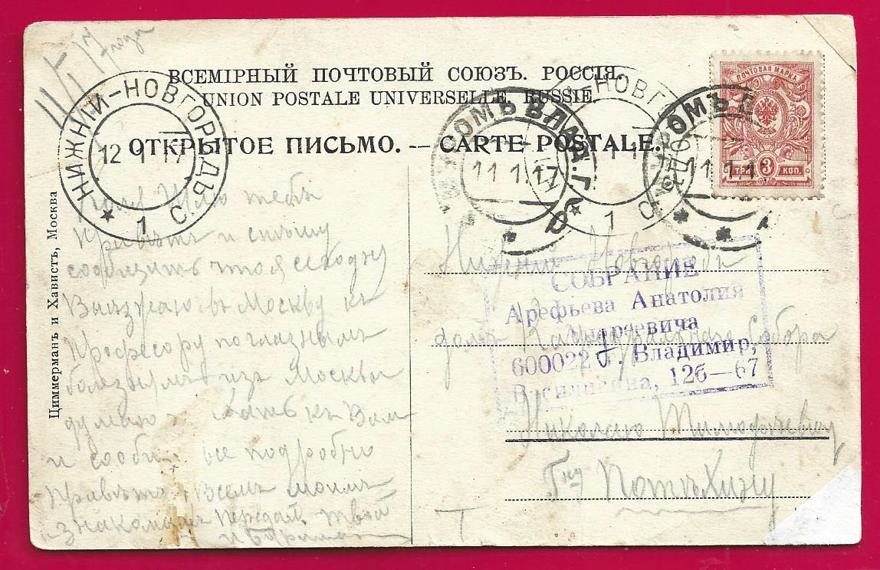 11/I 17 года
ВСЕМІРНЫЙ ПОЧТОВЫЙ СОЮЗЪ. РОССІЯ.
UNION POSTALE UNIVERSELLE. RUSSIE.
ОТКРЫТОЕ ПИСЬМО. — CARTE POSTALE.
НИЖНІЙ-НОВГОРОДЪ
12 1 17
1
11.1.17
НОВГ
1
11.1.1
ПОЧТОВАЯ МАРКА
3
ТРИ КОП.
Циммерманъ и Хавистъ, Москва
Коля Шлю тебѣ
Привѣтъ и спѣшу
сообщить что я сегодну
Выезжаю въ Москву къ
Професору по глазнымъ
болезнямъ изъ Москвы
думаю къ Вам
и сообщ все подробно
Привѣтъ Всемъ моимъ
знакомымъ передай Твой
Нижній Новгородъ
домъ Кафедральнаго Собора
Николаю Тимофеевичу
Гну Потѣхину
СОБРАНИЕ
Арефьева Анатолия
Андреевича
600022 г. Владимир,
126—67